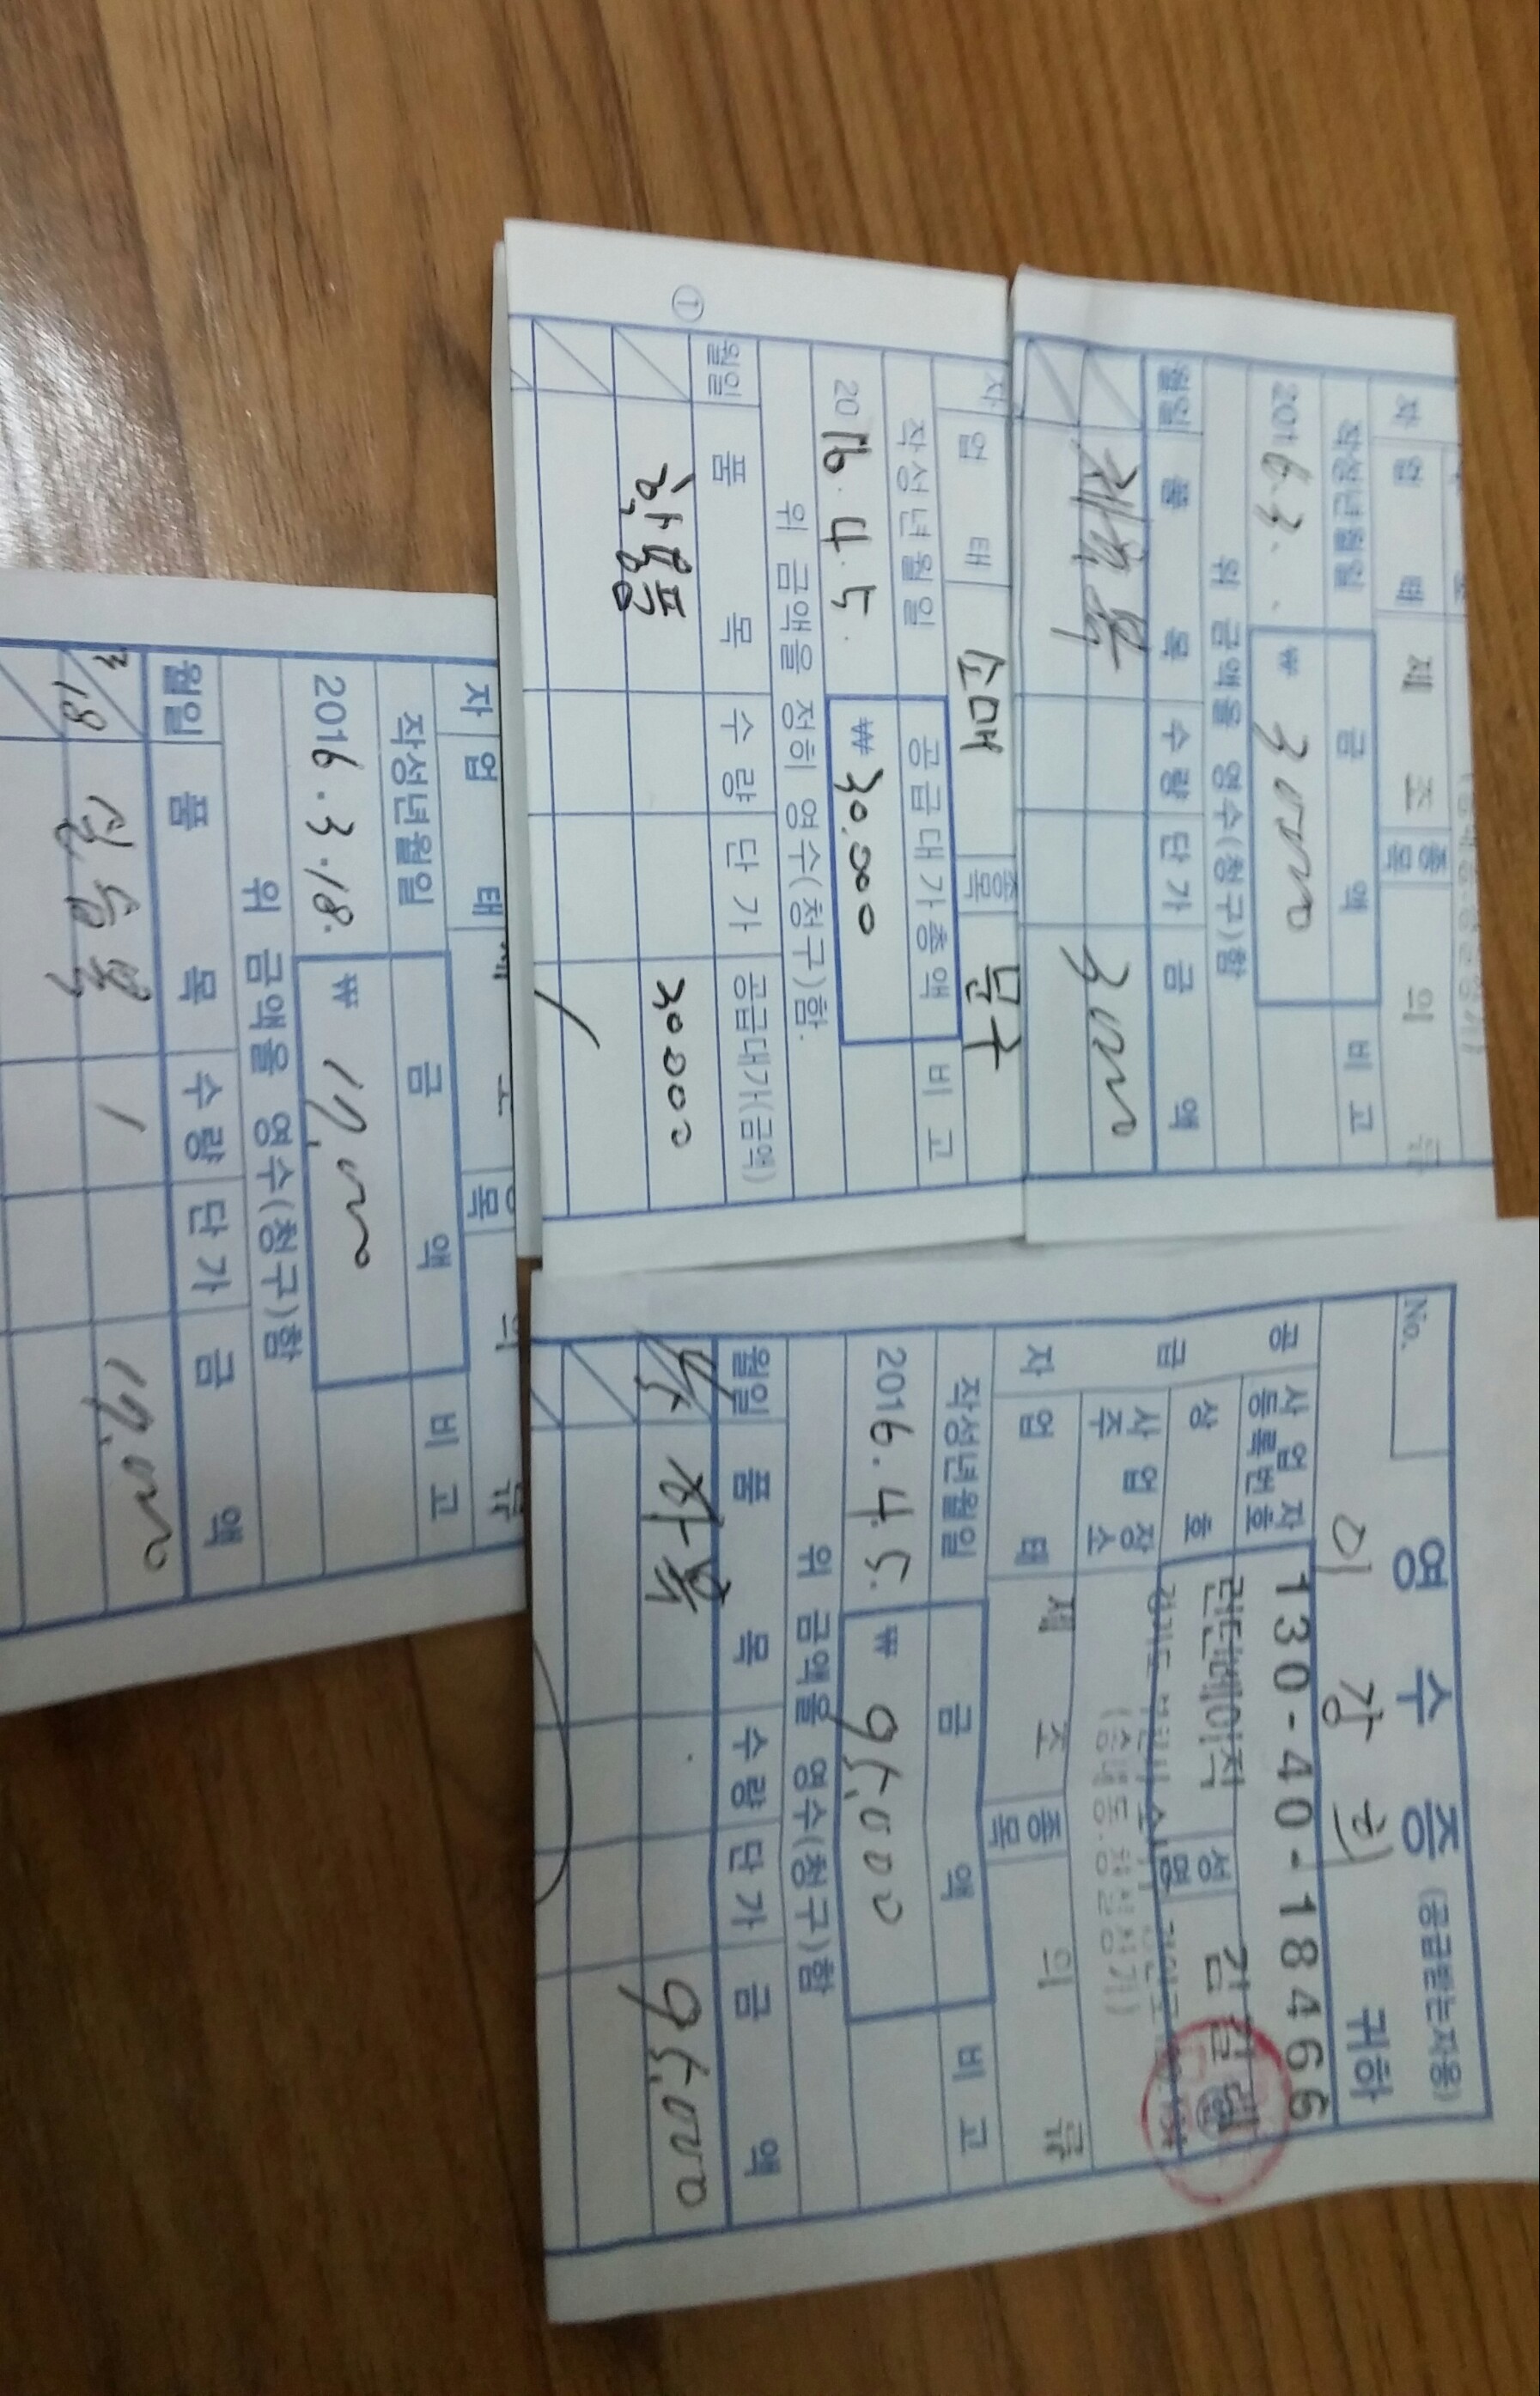 업 태 제 조 종목 의 류
작성년월일 금 액 비 고
2016. 3. . ₩ 30000
위 금액을 영수(청구)함
월일 품 목 수량 단가 금 액
체육복 30000
자 업 태 소매 종목 문구
작성년월일 공급대가총액 비 고
2016. 4. 5. ₩ 30,000
위 금액을 정히 영수(청구)함.
월일 품 목 수량 단가 공급대가(금액)
① 학용품 30000
자 업 태 제 조 종목 의 류
작성년월일 금 액 비 고
2016. 3. 18. ₩ 19,000
위 금액을 영수(청구)함
월일 품 목 수량 단가 금 액
3/18 실습복 1 19,000
No. 영 수 증 (공급받는자용)
이 강 귀하
공급자 사업자등록번호 130-40-18466
상 호 린턴베이직 성명 김
사업장주소 (송내동.
업 태 제 조 종목 의 류
작성년월일 금 액 비 고
2016. 4. 5. ₩ 95,000
위 금액을 영수(청구)함
월일 품 목 수량 단가 금 액
4/5 하복 95,000